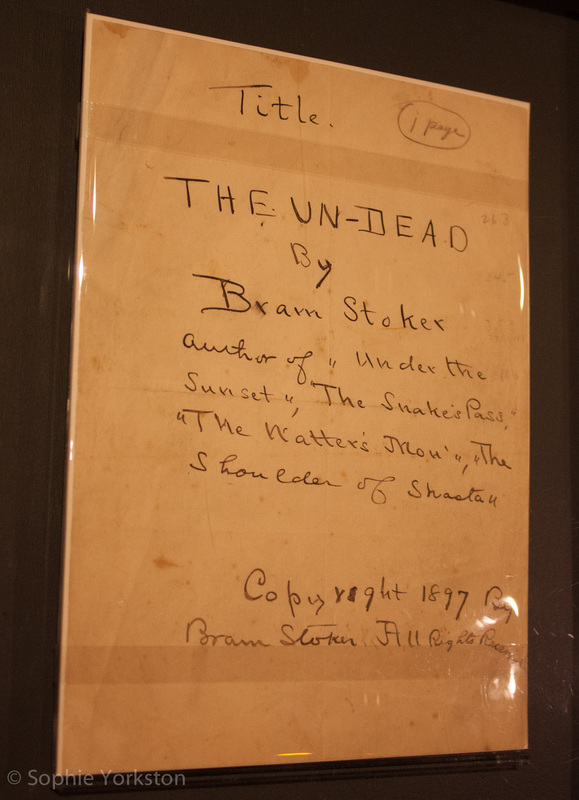 Title.
1 page
THE UN-DEAD
By
Bram Stoker
author of "Under the
Sunset", "The Snake's Pass,"
"The Watter's Mou'", "The
Shoulder of Shasta"
Copyright 1897 By
Bram Stoker. All Rights Reserved
© Sophie Yorkston